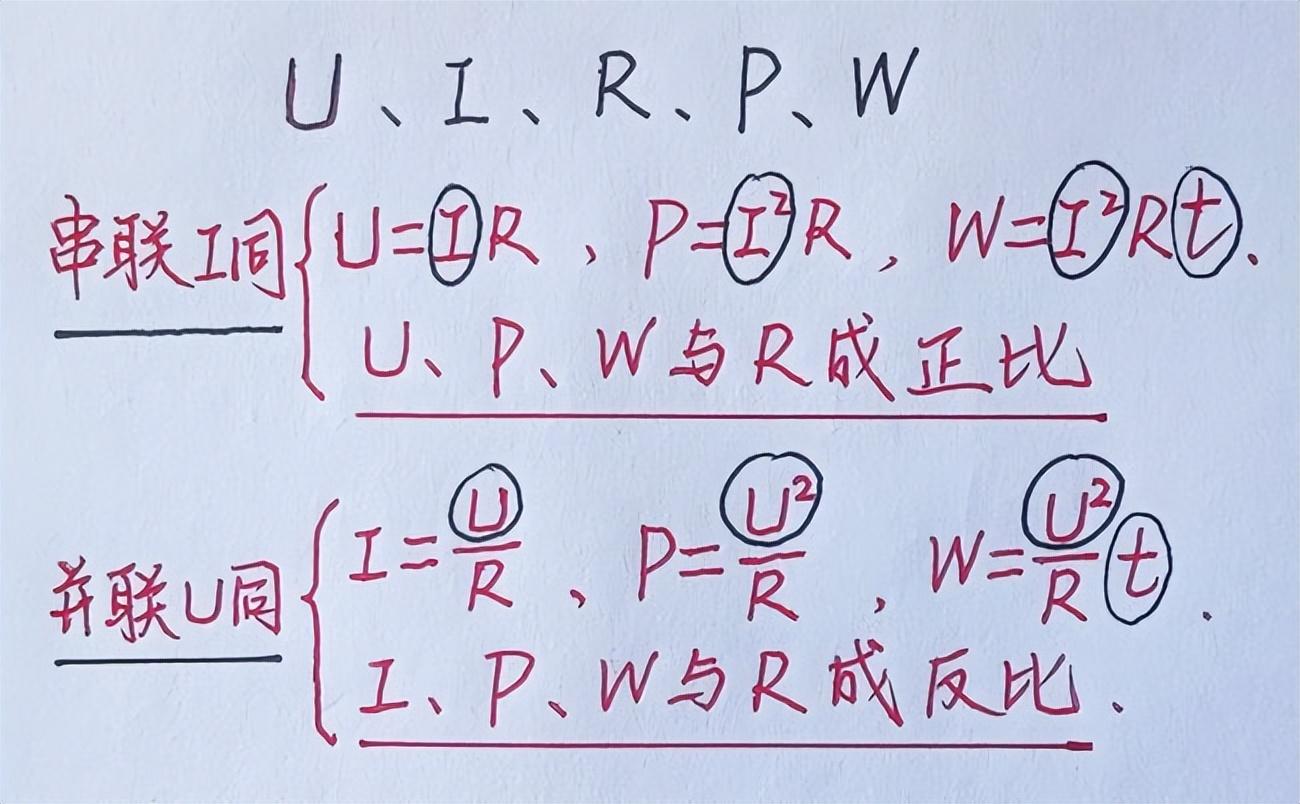 U、I、R、P、W
串联I同 { U=IR、P=I²R, W=I²Rt.
U、P、W与R成正比
并联U同 { I=U/R、P=U²/R, W=U²/R t.
I、P、W与R成反比.